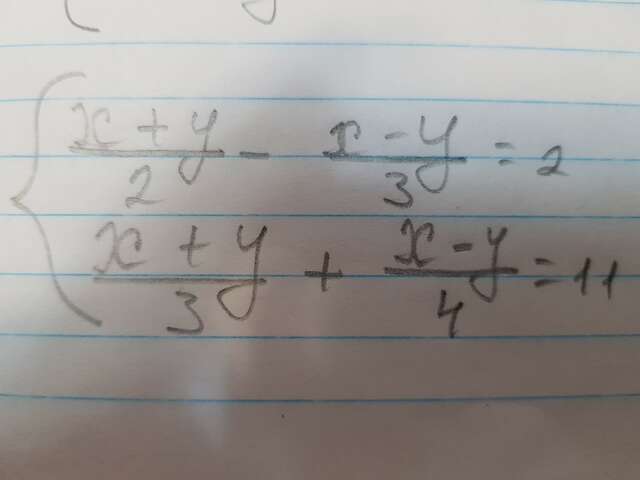 { (x + y)/2 - (x - y)/3 = 2
(x + y)/3 + (x - y)/4 = 11